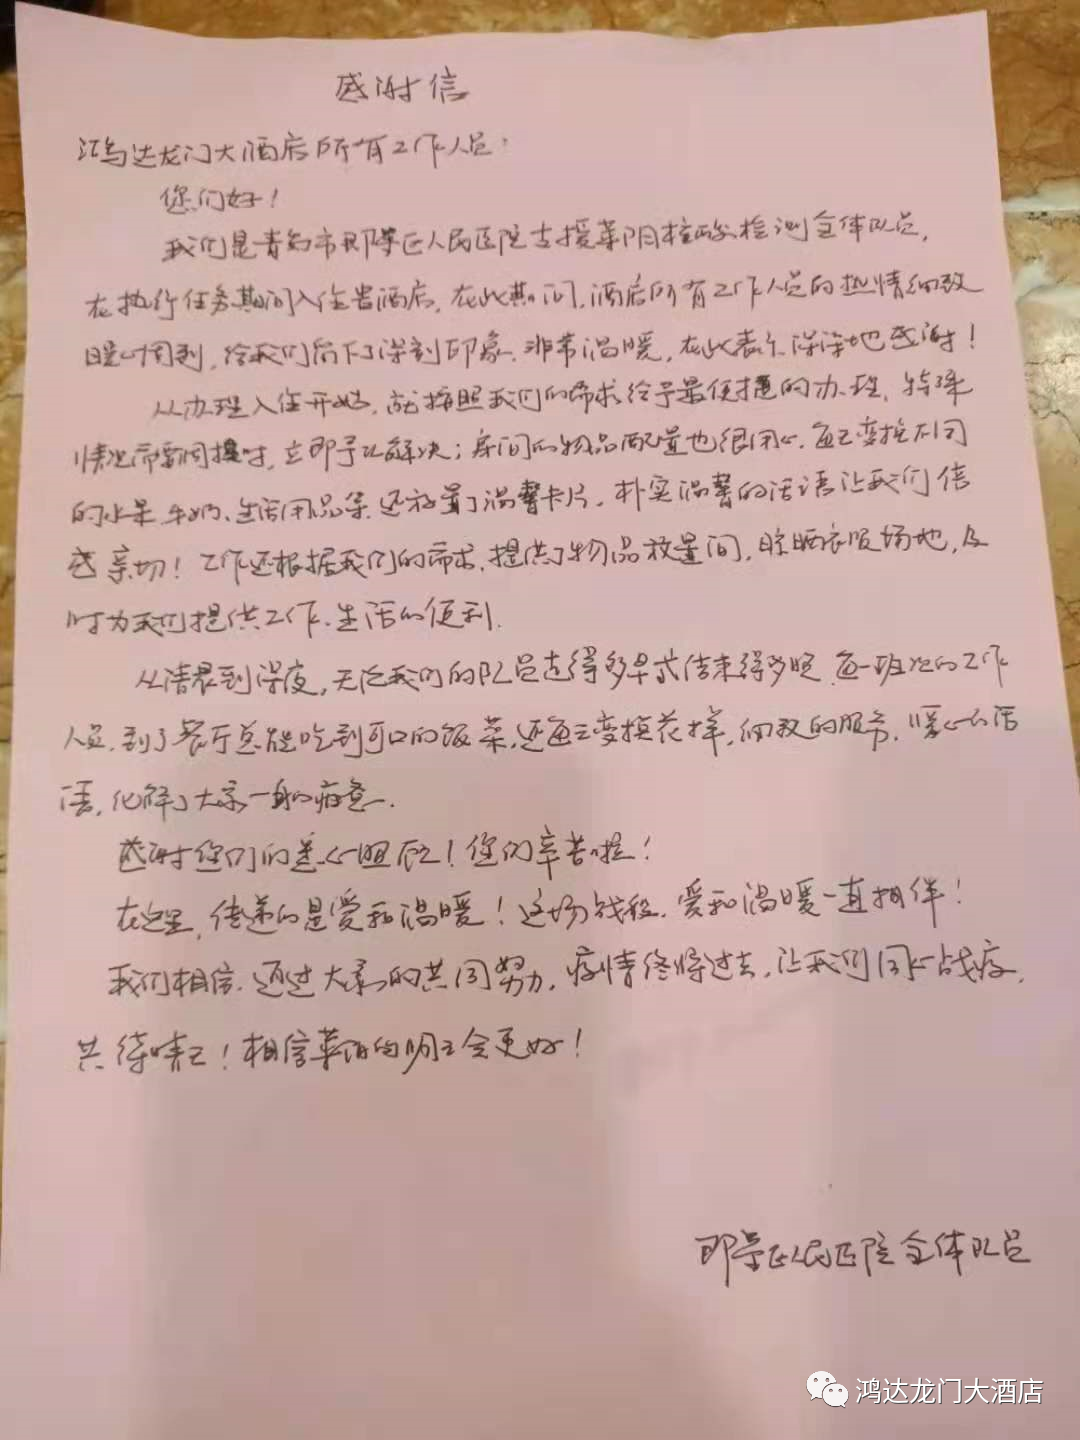 感谢信
鸿达龙门大酒店所有工作人员：
您们好！
我们是青岛市即墨区人民医院支援莱阳核酸检测全体队员，
在执行任务期间入住贵酒店，在此期间，酒店所有工作人员的热情细致
暖心周到，给我们留下了深刻印象，非常温暖，在此表示深深地感谢！
从办理入住开始，就按照我们的需求给予最便捷的办理，特殊
情况需要调换时，立即予以解决；房间的物品配置也很用心，每天变换不同
的水果、牛奶、生活用品等，还放置了温馨卡片，朴实温馨的话语让我们倍
感亲切！工作还根据我们的需求，提供了物品放置间，晾晒衣服场地，及
时为我们提供工作、生活的便利.
从清晨到深夜，无论我们的队员走得多早或结束得多晚，每一班次的工作
人员，到了餐厅总能吃到可口的饭菜，还每天变换花样，细致的服务，暖心的话
语，化解了大家一身的疲惫.
感谢您们的关心照顾！您们辛苦啦！
在这里，传递的是爱和温暖！这场战役，爱和温暖一直相伴！
我们相信，通过大家的共同努力，疫情终将过去，让我们同心战疫，
共待晴天！相信莱阳的明天会更好！
即墨区人民医院全体队员
鸿达龙门大酒店